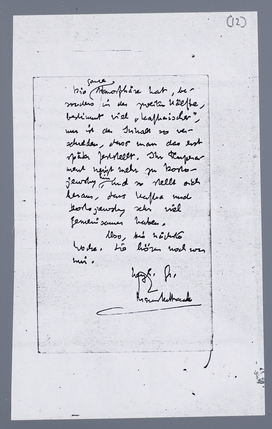 (12)
ganze
Die Atmosphäre hat, be-
sonders in der zweiten Hälfte,
bestimmt viel „Kafkaisches",
nur ist der Inhalt so ver-
schieden, dass man das erst
später feststellt. Ihr Tempera-
ment neigt mehr zu Dosto-
jewsky hin und so stellt sich
heraus, dass Kafka und
Dostojewsky sehr viel
Gemeinsames haben.
Also, bis nächste
Woche. Sie hören noch von
mir.